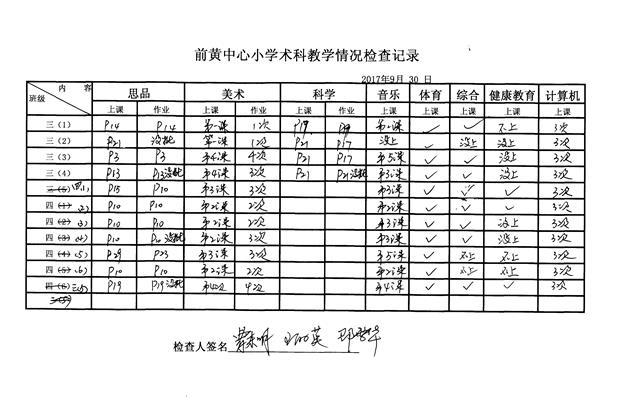 前黄中心小学术科教学情况检查记录
2017年9月 30 日
内容 班级 思品 美术 科学 音乐 体育 综合 健康教育 计算机
上课 作业 上课 作业 上课 作业 上课 上课 上课 上课 上课
三(1) P14 P14 第一课 1次 P19 ✓ ✓ 不上 3次
三(2) P21 没批 第一课 1次 P21 P17 没上 ✓ 没上 没上 3次
三(3) P3 P3 第4课 4次 P21 P17 第5课 ✓ ✓ 没上 3次
三(4) P13 P13没批 第4课 3次 P21 P21没批 第3课 ✓ ✓ 没上 3次
三(5) 四(1) P15 P10 第3课 3次 第3课 ✓ ✓ ✓ 3次
四(1) (2) P10 P10 第2课 2次 第2课 ✓ ✓ ✓ 3次
四(2) (3) P10 P10 第2课 2次 第3课 ✓ ✓ 没上 3次
四(3) (4) P10 P10没批 第2课 3次 第3课 ✓ ✓ 没上 3次
四(4) (5) P29 P23 第3课 3次 第5课 ✓ 不上 ✓ 3次
四(5) (6) P10 P10 第2课 2次 第2课 ✓ 不上 ✓ 3次
四(6) 三(5) P19 P19没批 第4次 4次 第4课 ✓ ✓ ✓ 3次
检查人签名